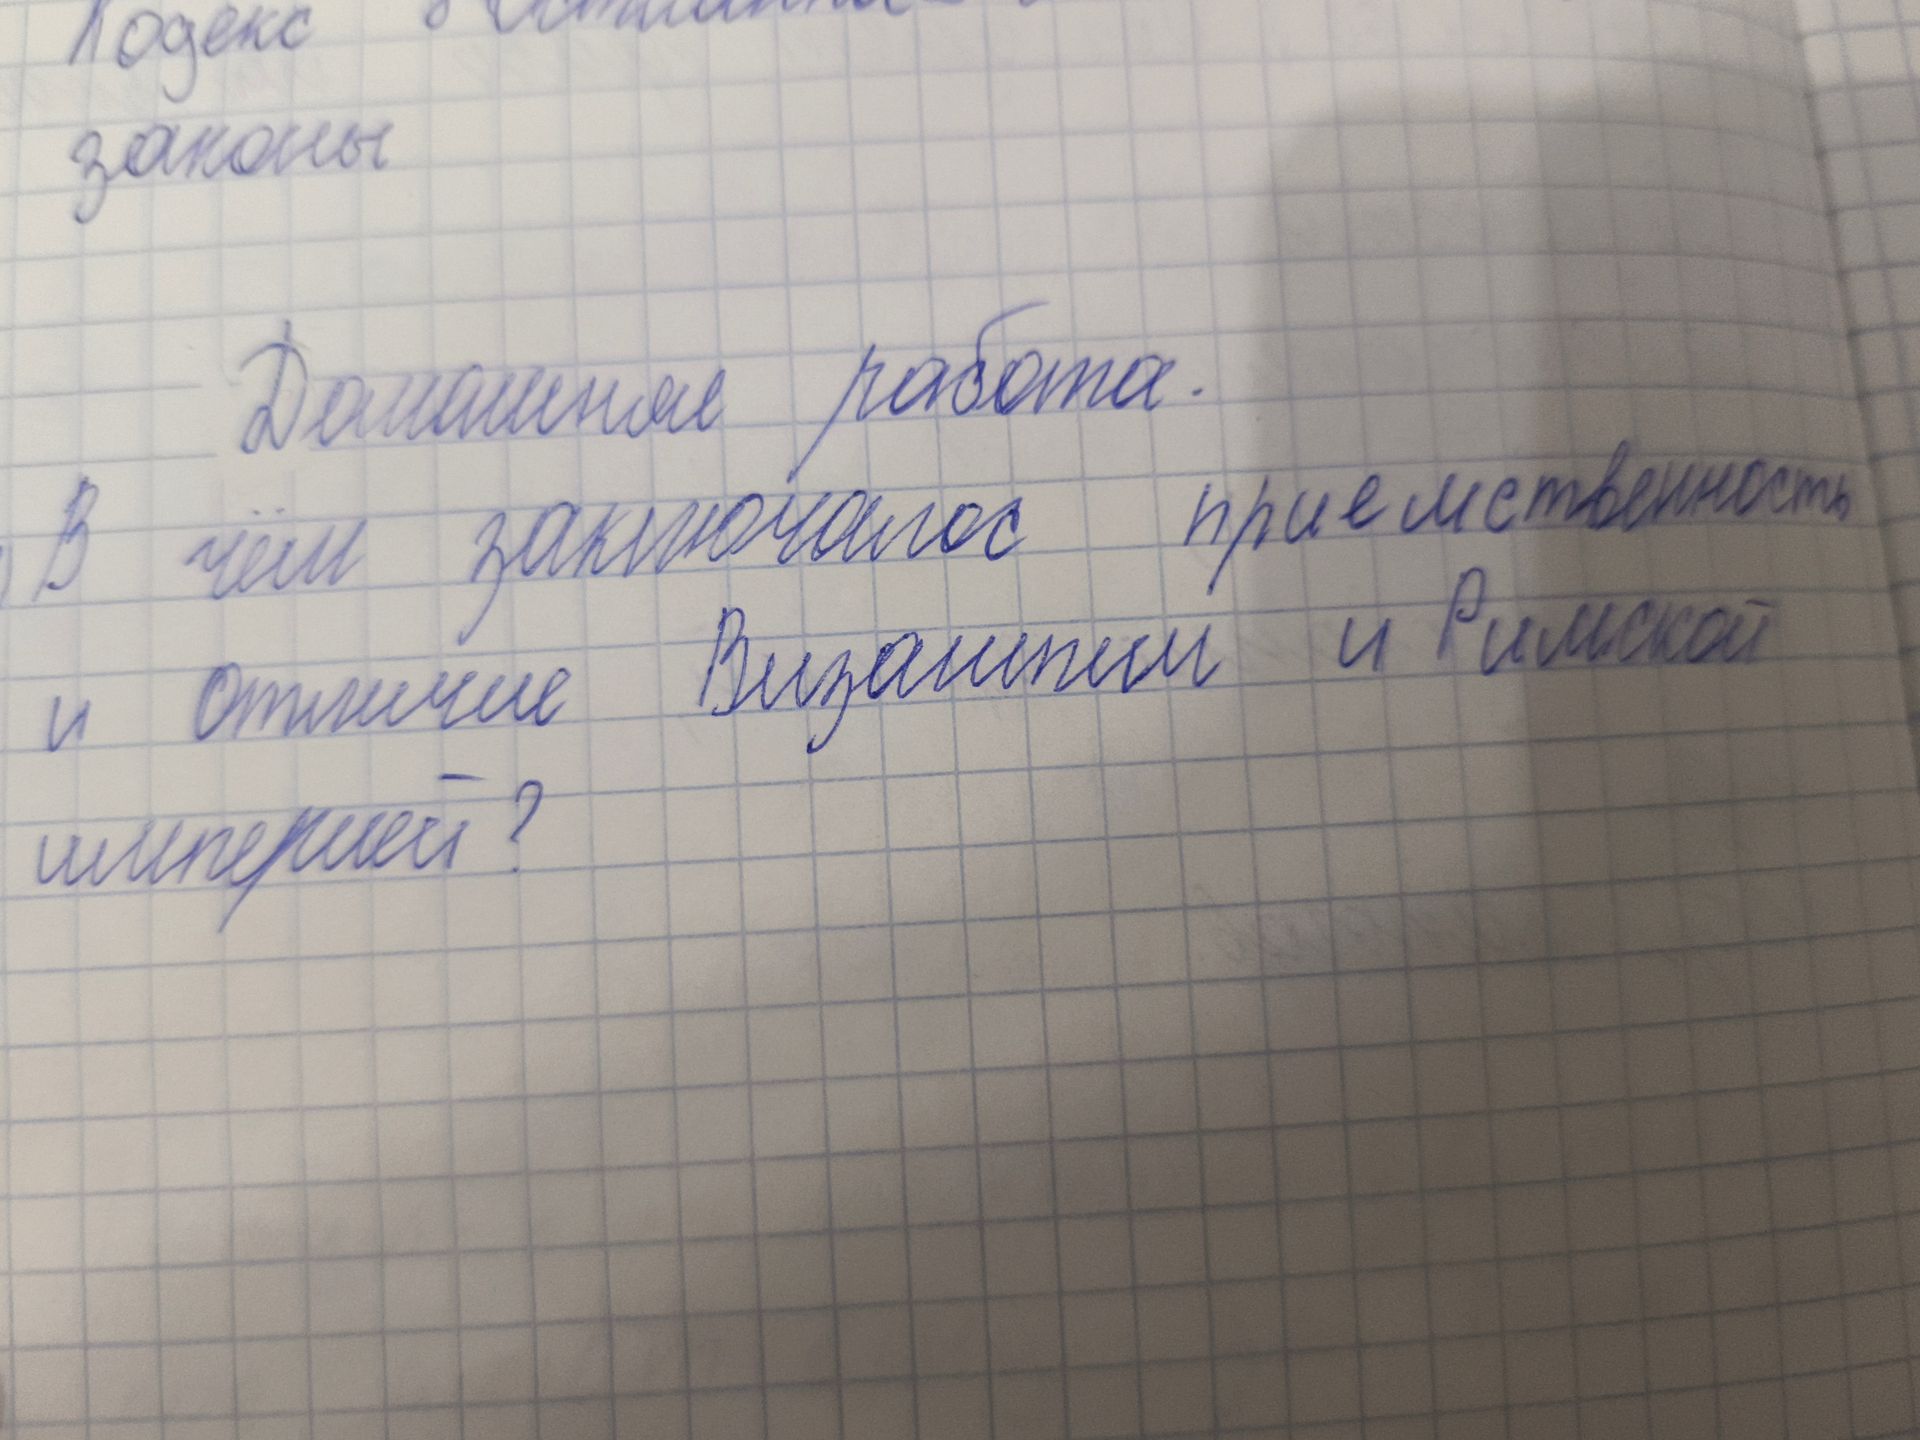 Кодекс
законы
Домашняя работа.
В чём заключалос приемственность
и отличие Византии и Римской
империей?